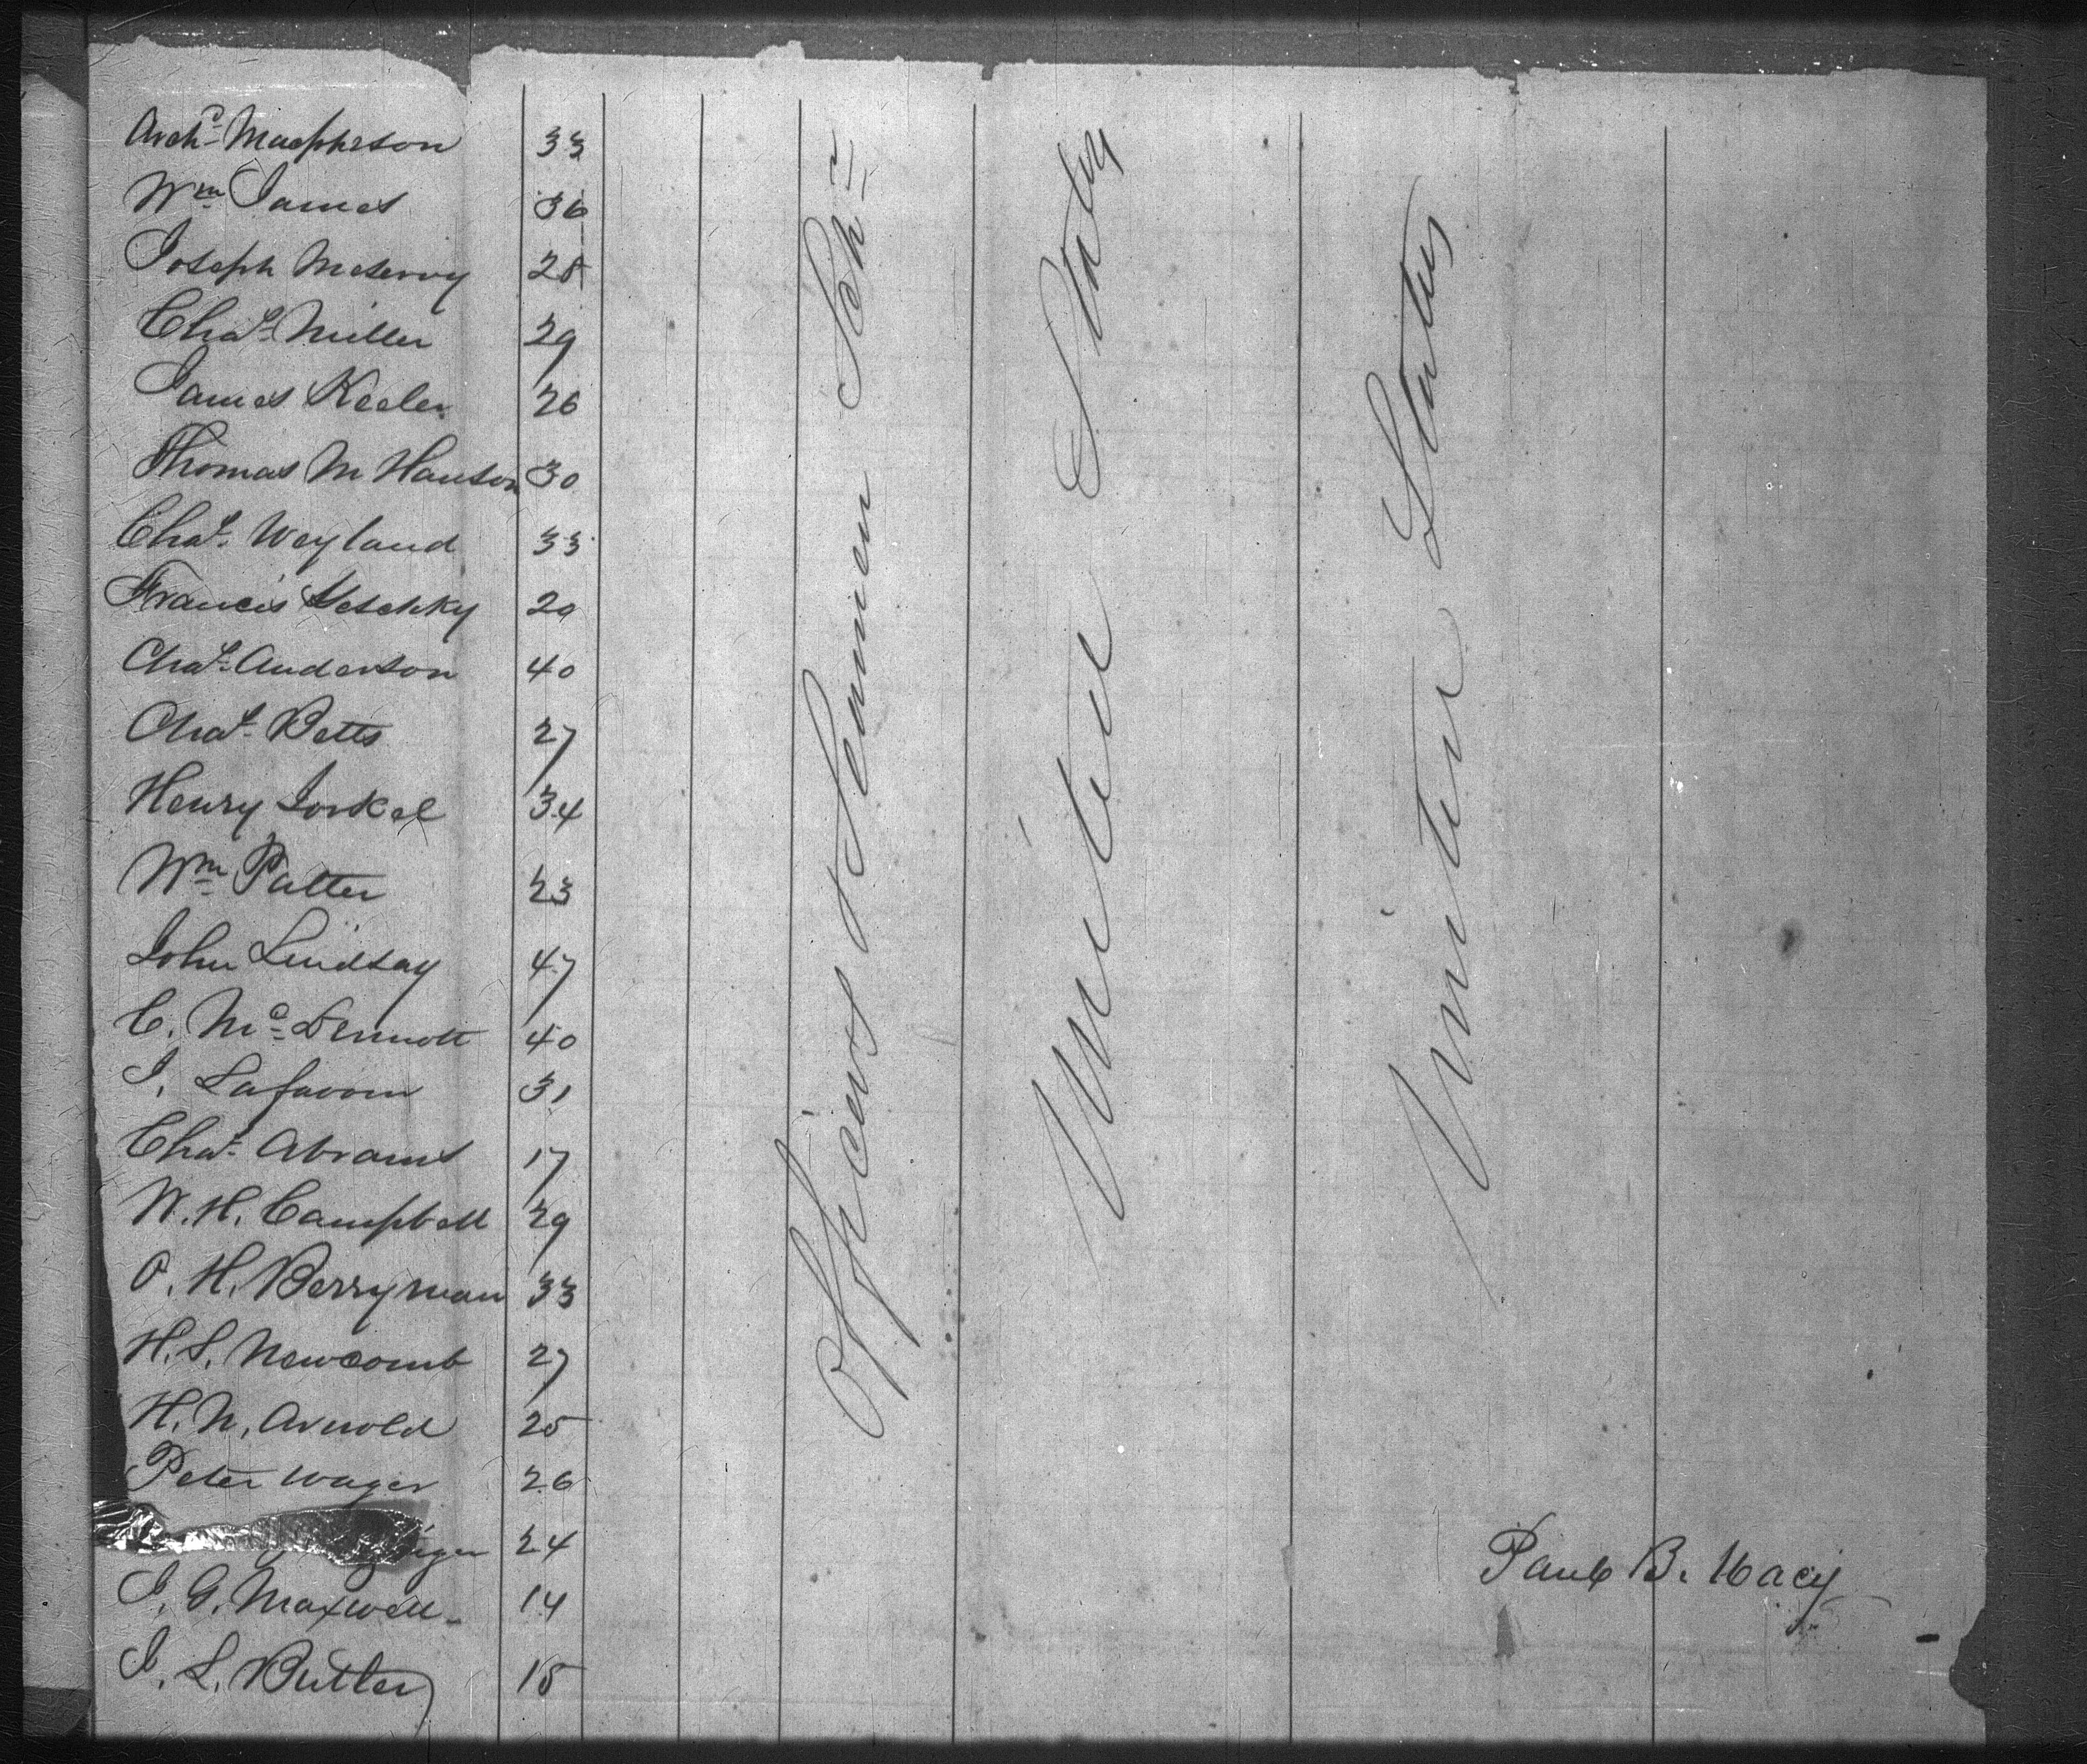 Arch.d Macpherson 33
Wm James 36
Joseph Meservy 28
Chas. Miller 29
James Keeler 26
Thomas M Hanson 30
Chas. Weyland 33
Francis 29
Chas. Anderson 40
Chas. Betts 27
Henry 34
Wm Patter 23
John Lindsay 47
C. Mc Dermott 40
J. 31
Chas. Abrams 17
W. H. Campbell 29
O. H. Berryman 33
H. S. Newcomb 27
H. N. Arnold 25
Peter Wager 26
24
J. G. Maxwell 14
J. L. Butler 15
Officers & Seamen Schr
United States
United States
Paul B. Macy